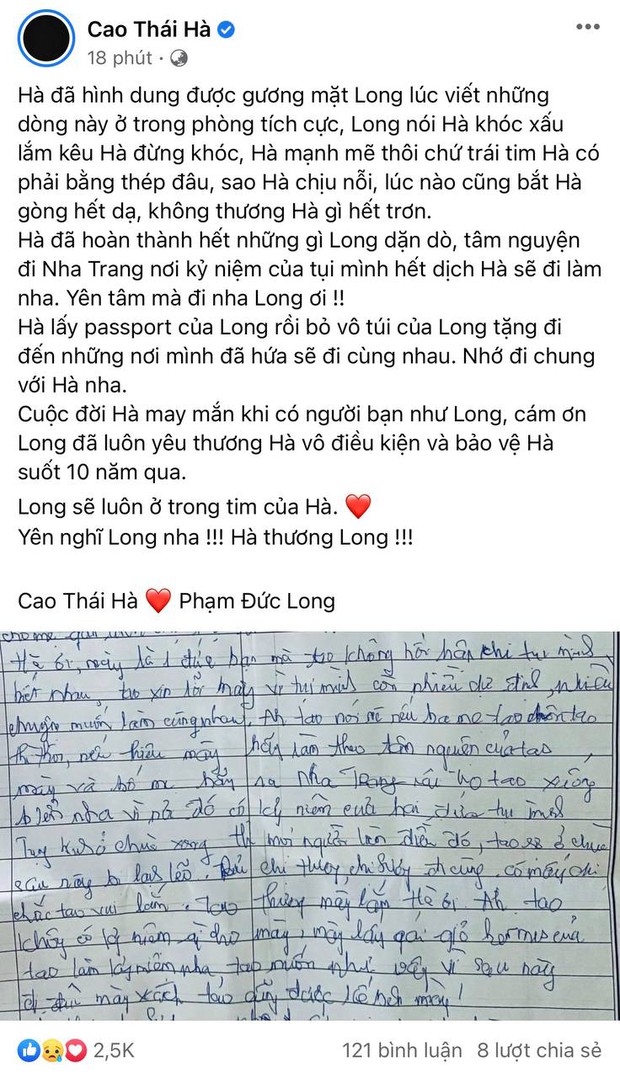 Cao Thái Hà
18 phút
Hà đã hình dung được gương mặt Long lúc viết những
dòng này ở trong phòng tích cực, Long nói Hà khóc xấu
lắm kêu Hà đừng khóc, Hà mạnh mẽ thôi chứ trái tim Hà có
phải bằng thép đâu, sao Hà chịu nỗi, lúc nào cũng bắt Hà
gòng hết dạ, không thương Hà gì hết trơn.
Hà đã hoàn thành hết những gì Long dặn dò, tâm nguyện
đi Nha Trang nơi kỷ niệm của tụi mình hết dịch Hà sẽ đi làm
nha. Yên tâm mà đi nha Long ơi !!
Hà lấy passport của Long rồi bỏ vô túi của Long tặng đi
đến những nơi mình đã hứa sẽ đi cùng nhau. Nhớ đi chung
với Hà nha.
Cuộc đời Hà may mắn khi có người bạn như Long, cám ơn
Long đã luôn yêu thương Hà vô điều kiện và bảo vệ Hà
suốt 10 năm qua.
Long sẽ luôn ở trong tim của Hà. ❤️
Yên nghĩ Long nha !!! Hà thương Long !!!
Cao Thái Hà ❤️ Phạm Đức Long
Hà ơi, mày là 1 đứa bạn mà tao không hối hận khi tụi mình
biết nhau, tao xin lỗi mày vì tụi mình còn nhiều dự định, nhiều
chuyện muốn làm cùng nhau. Ah tao nói rồi nếu ba mẹ tao
hãy làm theo tâm nguyện của tao,
mày và bố mẹ hãy ra nha Trang rải tro tao xuống
biển nha vì nơi đó có kỷ niệm của hai đứa tụi mình
thì mọi người làm điều đó, tao sợ ở chùa
sau này bị lạnh lẽo.
chắc tao vui lắm. Tao thương mày lắm Hà ơi. Ah tao
không có kỷ niệm gì cho mày, mày lấy cái giỏ hermes của
tao làm kỷ niệm nha, tao muốn như vậy vì sau này
đi đâu mày xách tao cũng được kế bên mày!
2,5K
121 bình luận
8 lượt chia sẻ